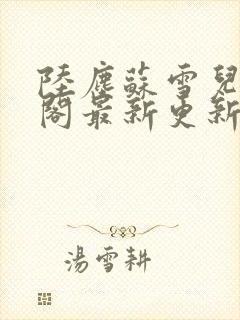 陸塵蘇雪兒
閣最新更新
湯雪耕